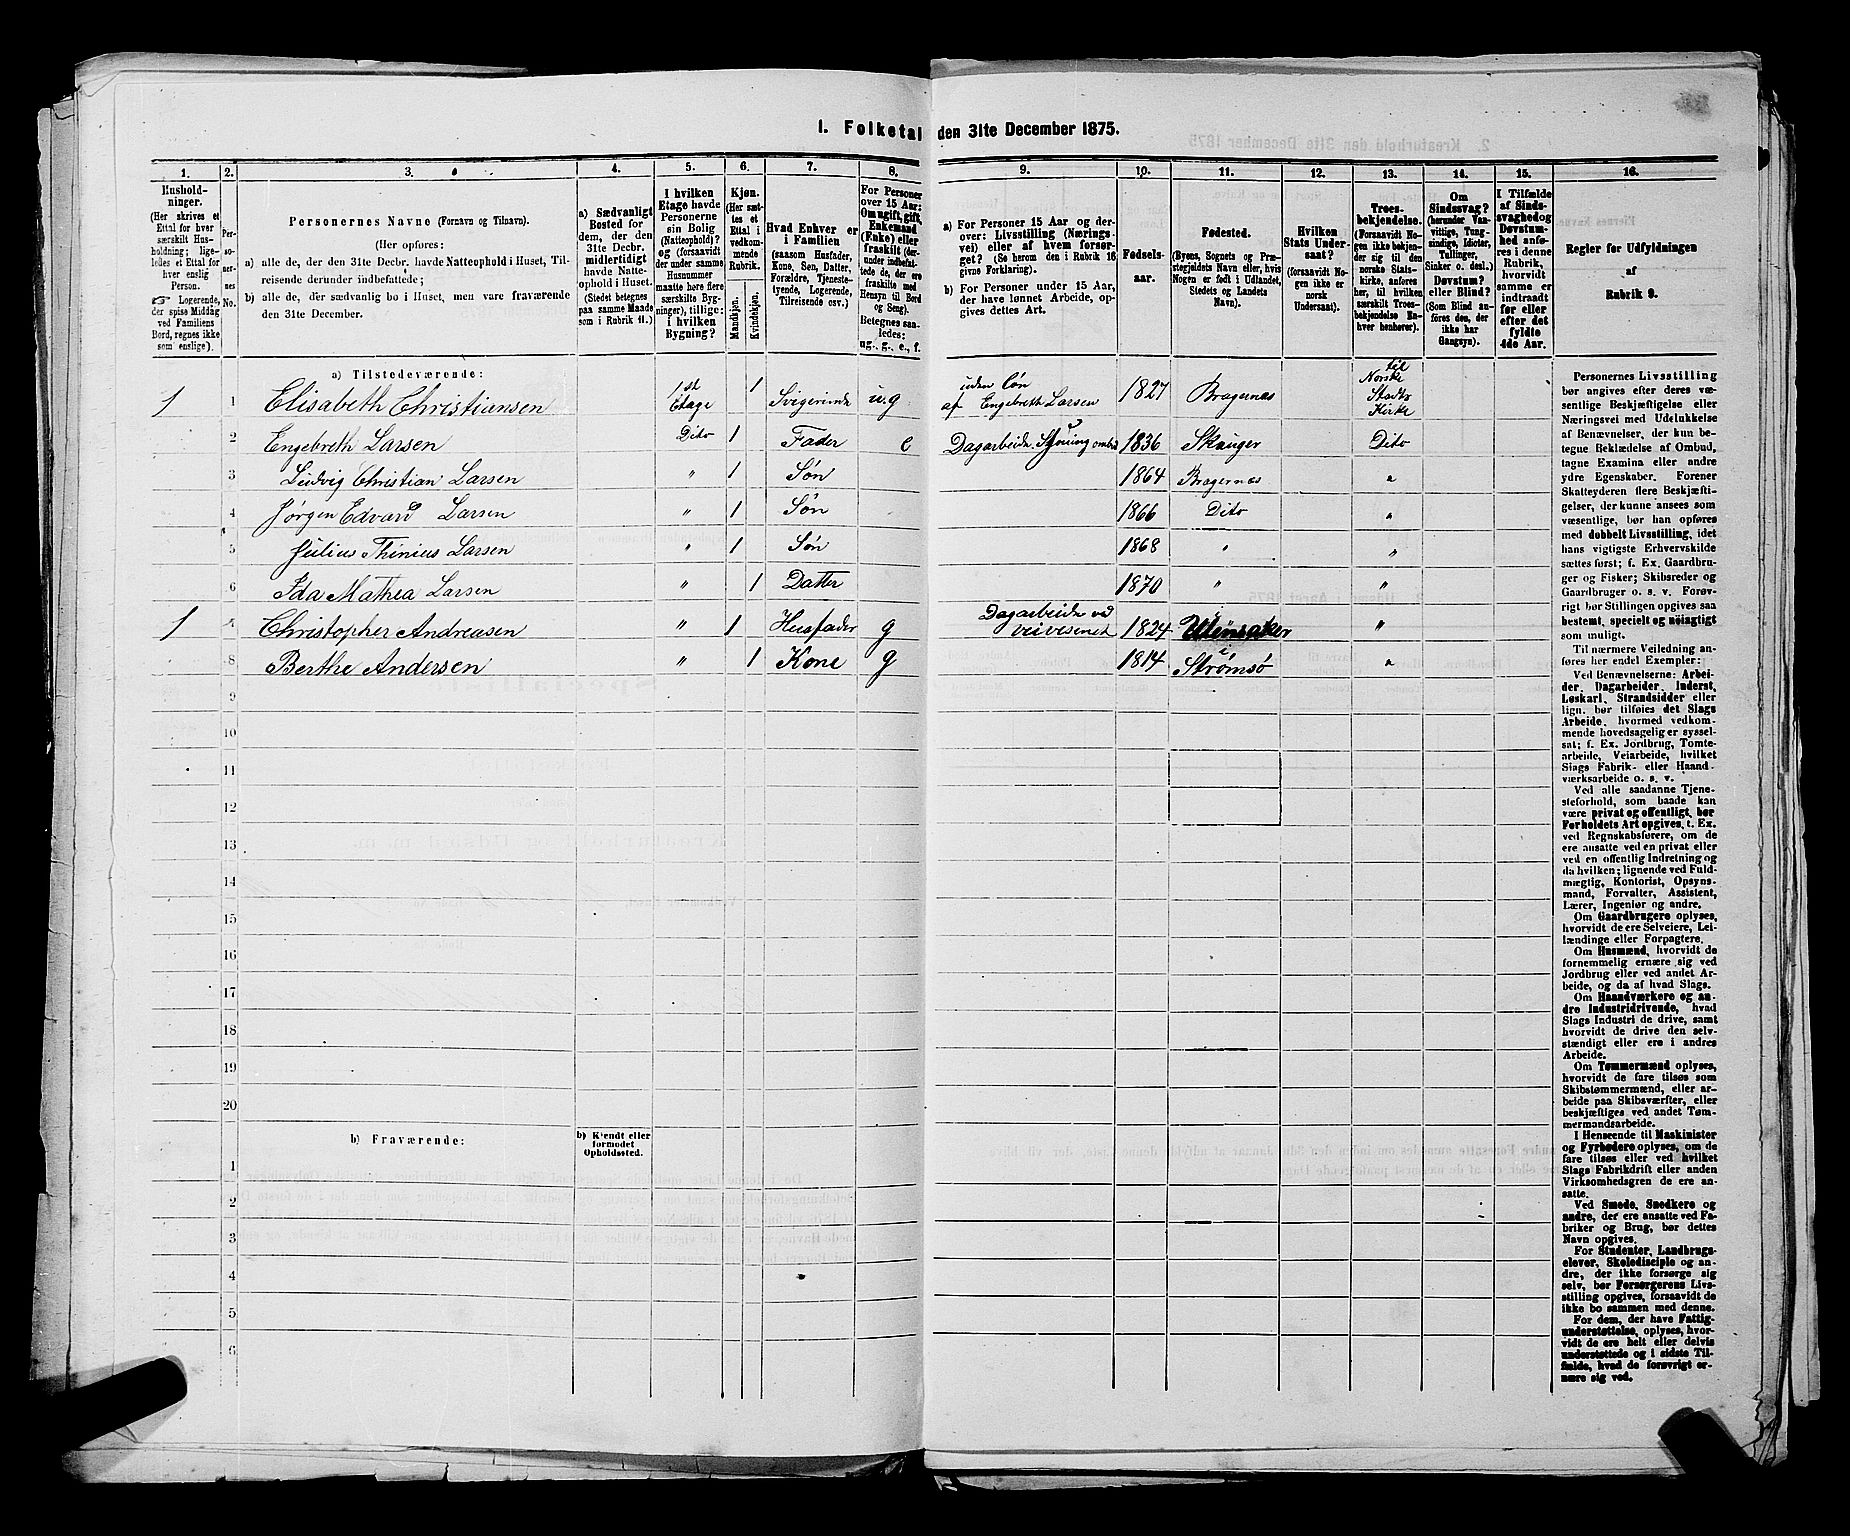 1. Folketal den 31te December 1875.
1. 2. 3. 4. 5. 6. 7. 8. 9. 10. 11. 12. 13. 14. 15. 16.
Hushold-
ninger.
(Her skrives et
Ettal for hver
særskilt Hus-
holdning; lige-
ledes et Ettal for
hver enslig
Person.
Logerende,
der spise Middag
ved Familiens
Bord, regnes ikke
som enslige).
Per-
so-
ner-
nes
No.
Personernes Navne (Fornavn og Tilnavn).
(Her opføres:
a) alle de, der den 31te Decbr. havde Natteophold i Huset, Til-
reisende derunder indbefattede;
b) alle de, der sædvanlig bo i Huset, men vare fraværende
den 31te December.
a) Sædvanligt
Bosted for
dem, der den
31te Decbr.
midlertidigt
havde Natte-
ophold i Huset.
(Stedet betegnes
paa samme Maade
som i Rubrik 11.)
I hvilken
Etage havde
Personerne
sin Bolig
(Natteophold)?
og (forsaavidt
der under samme
Husnummer
maatte høre flere
særskilte Byg-
ninger), tillige:
i hvilken
Bygning?
Kjøn.
(Her sæt-
tes et
Ettal i
vedkom-
mende
Rubrik.
Mandkjøn.
Kvindekjøn.
Hvad Enhver er
i Familien
(saasom Husfader,
Kone, Søn, Datter,
Forældre, Tjeneste-
tyende, Logerende,
Tilreisende osv.)
For Personer
over 15 Aar:
Om ugift, gift,
Enkemand
(Enke) eller
fraskilt (der-
under indbefat-
tede de, der ere
fraskilte med
Hensyn til Bord
og Seng).
Betegnes saa-
ledes:
ug., g., e., f.
a) For Personer 15 Aar og der-
over: Livsstilling (Nærings-
vei) eller af hvem forsør-
get? (Se herom den i Rubrik 16
givne Forklaring).
b) For Personer under 15 Aar,
der have lønnet Arbeide, op-
gives dettes Art.
Fødsels-
aar.
Fødested.
(Byens, Sognets og Præ-
stegjeldets Navn eller, hvis
Nogen er født i Udlandet,
Stedets og Landets
Navn).
Hvilken
Stats Under-
saat?
(forsaavidt No-
gen ikke er
norsk
Undersaat).
Troes-
bekjendelse.
(Forsaavidt No-
gen ikke bekjen-
der sig til den
norske Stats-
kirke, anføres
her, til hvilken
særskilt Troes-
bekjendelse En-
hver henhører).
Om
Sindssvag?
(herunder Van-
vittige, Tung-
sindige, Idioter,
Tullinger,
Sinker o. desl.)
Døvstum?
eller Blind?
(Som Blind an-
føres den, der
ikke har
Gangsyn).
I Tilfælde
af Sinds-
svaghed og
Døvstum-
hed anfø-
res i denne
Rubrik,
hvorvidt
samme er
indtraadt
før eller
efter det
fyldte
4de Aar.
Regler for Udfyldningen
af
Rubrik 9.
a) Tilstedeværende:
1 1 Elisabeth Christiansen 1st Etage 1 Svigerinde u.g uden Løn af Engebreth Larsen 1827 Bragernæs til Norske Stadts Kirke
2 Engebreth Larsen Dito 1 Fader e Dagarbeide 1836 Skouger Dito
3 Ludvig Christian Larsen " 1 Søn 1864 Bragernæs "
4 Jørgen Edvard Larsen " 1 Søn 1866 Dito "
5 Julius Thinius Larsen " 1 Søn 1868 " "
6 Ida Mathea Larsen " 1 Datter 1870 " "
1 7 Christopher Andreasen " 1 Husfader g Dagarbeide ved 1824 "
8 Berthe Andersen " 1 Kone g 1814 Strømsø "
9
10
11
12
13
14
15
16
17
18
19
20
b) Fraværende:
b) Kjendt eller
formodet
Opholdssted.
1
2
3
4
5
6
Personernes Livsstilling
bør angives efter deres væ-
sentlige Beskjæftigelse eller
Næringsvei med Udelukkelse
af Benævnelser, der kun be-
tegne Beklædelse af Ombud,
tagne Examina eller andre
ydre Egenskaber. Forener
Skatteyderen flere Beskjæfti-
gelser, der kunne ansees som
væsentlige, bør han opføres
med dobbelt Livsstilling, idet
hans vigtigste Erhvervskilde
sættes først; f. Ex. Gaardbru-
ger og Fisker; Skibsreder og
Gaardbruger o. s. v. Forøv-
rigt bør Stillingen opgives saa
bestemt, specielt og nøiagtigt
som muligt.
Til nærmere Veiledning an-
føres her endel Exempler:
Ved Benævnelserne: Arbei-
der, Dagarbeider, Inderst,
Løskarl, Strandsidder eller
lign. bør tilføies det Slags
Arbeide, hvormed vedkom-
mende hovedsagelig er syssel-
sat; f. Ex. Jordbrug, Tomte-
arbeide, Veiarbeide, hvilket
Slags Fabrik- eller Haand-
værksarbeide o. s. v.
Ved alle saadanne Tjene-
steforhold, som baade kan
være privat og offentligt, bør
Forholdets Art opgives, t. Ex.
ved Regnskabsførere, om de
ere ansatte ved en privat eller
ved en offentlig Indretning og
da hvilken; lignende ved Fuld-
mægtig, Kontorist, Opsyns-
mand, Forvalter, Assistent,
Lærer, Ingeniør og andre.
Om Gaardbrugere oplyses,
hvorvidt de ere Selveiere, Lei-
lændinge eller Forpagtere.
Om Husmænd, hvorvidt de
fornemmelig ernære sig ved
Jordbrug eller ved andet Ar-
beide, og da af hvad Slags.
Om Haandværkere og an-
dre Industridrivende, hvad
Slags Industri de drive, samt
hvorvidt de drive den selv-
stændigt eller ere i andres
Arbeide.
Om Tømmermænd oplyses,
hvorvidt de fare tilsøs som
Skibstømmermænd, eller ar-
beide paa Skibsværfter, eller
beskjæftiges ved andet Tøm-
mermandsarbeide.
I Henseende til Maskinister
og Fyrbødere oplyses, om de
fare tilsøs eller ved hvilket
Slags Fabrikdrift eller anden
Virksomhedsgren de ere an-
satte.
Ved Smede, Snedkere og
andre, der ere ansatte ved Fa-
briker og Brug, bør dettes
Navn opgives.
For Studenter, Landbrugs-
elever, Skoledisciple og an-
dre, der ikke forsørge sig
selv, bør Forsørgerens Livs-
stilling opgives, forsaavidt de
ikke bo sammen med denne.
For dem, der have Fattig-
understøttelse, oplyses, hvor-
vidt de ere helt eller delvis
understøttede og i sidste Til-
fælde, hvad de forøvrigt er-
nære sig ved.